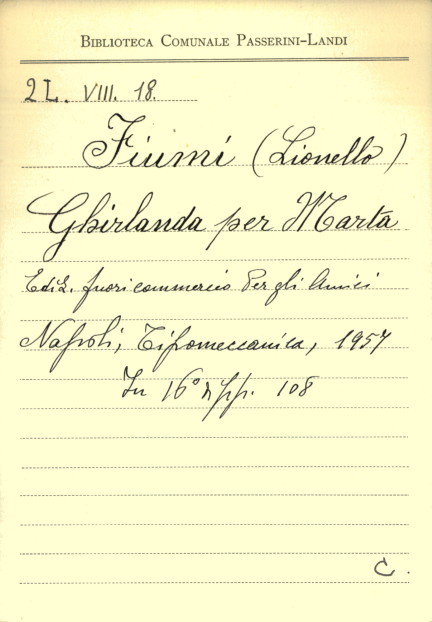 BIBLIOTECA COMUNALE PASSERINI-LANDI
2L. VIII. 18.
Fiumi (Lionello)
Ghirlanda per Marta
Ediz. fuori commercio Per gli Amici
Napoli, Tipomeccanica, 1957
In 16° pp. 108
C.